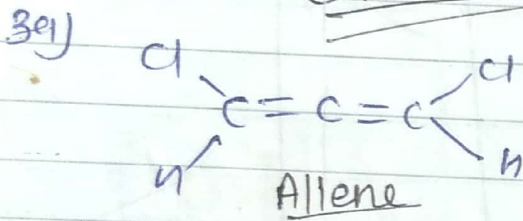 39)
Cl Cl
C = C = C
H H
Allene